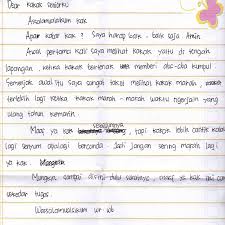 Dear kakak seniorku
Assalamualaikum kak
Apa kabar kak ? Saya harap baik - baik saja Amin
Awal pertama kali saya melihat kakak yaitu di tengah
lapangan, ketika kakak berteriak memberi aba-aba kumpul
Semenjak awal itu saya sangat takut melihat kakak marah
terlebih lagi ketika kakak marah - marah waktu ngerjain yang
ulang tahun kemarin.
Maaf ya kak sebelumnya, tapi kakak lebih cantik kalau
lagi senyum apalagi bercanda Jadi jangan sering marah lagi
ya kak.
Mungkin sampai disini dulu suratnya, maaf ya kak ini
sekedar tugas.
Wassalamualaikum wr wb